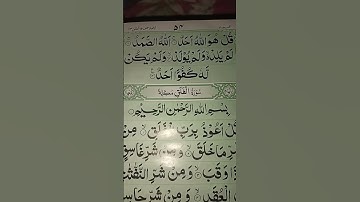 قُلْ هُوَ اللّٰهُ اَحَدٌ ۚ اَللّٰهُ الصَّمَدُ ۚ
لَمْ يَلِدْ ۙ وَلَمْ يُوْلَدْ ۙ وَلَمْ يَكُنْ
لَّهٗ كُفُوًا اَحَدٌ
سُوْرَةُ الْفَلَقِ مَكِّيَّةٌ
بِسْمِ اللّٰهِ الرَّحْمٰنِ الرَّحِيْمِ
قُلْ اَعُوْذُ بِرَبِّ الْفَلَقِ ۙ مِنْ
شَرِّ مَا خَلَقَ ۙ وَ مِنْ شَرِّ غَاسِقٍ
اِذَا وَقَبَ ۙ وَ مِنْ شَرِّ النَّفّٰثٰتِ
الْعُقَدِ ۙ وَ مِنْ شَرِّ حَاسِدٍ